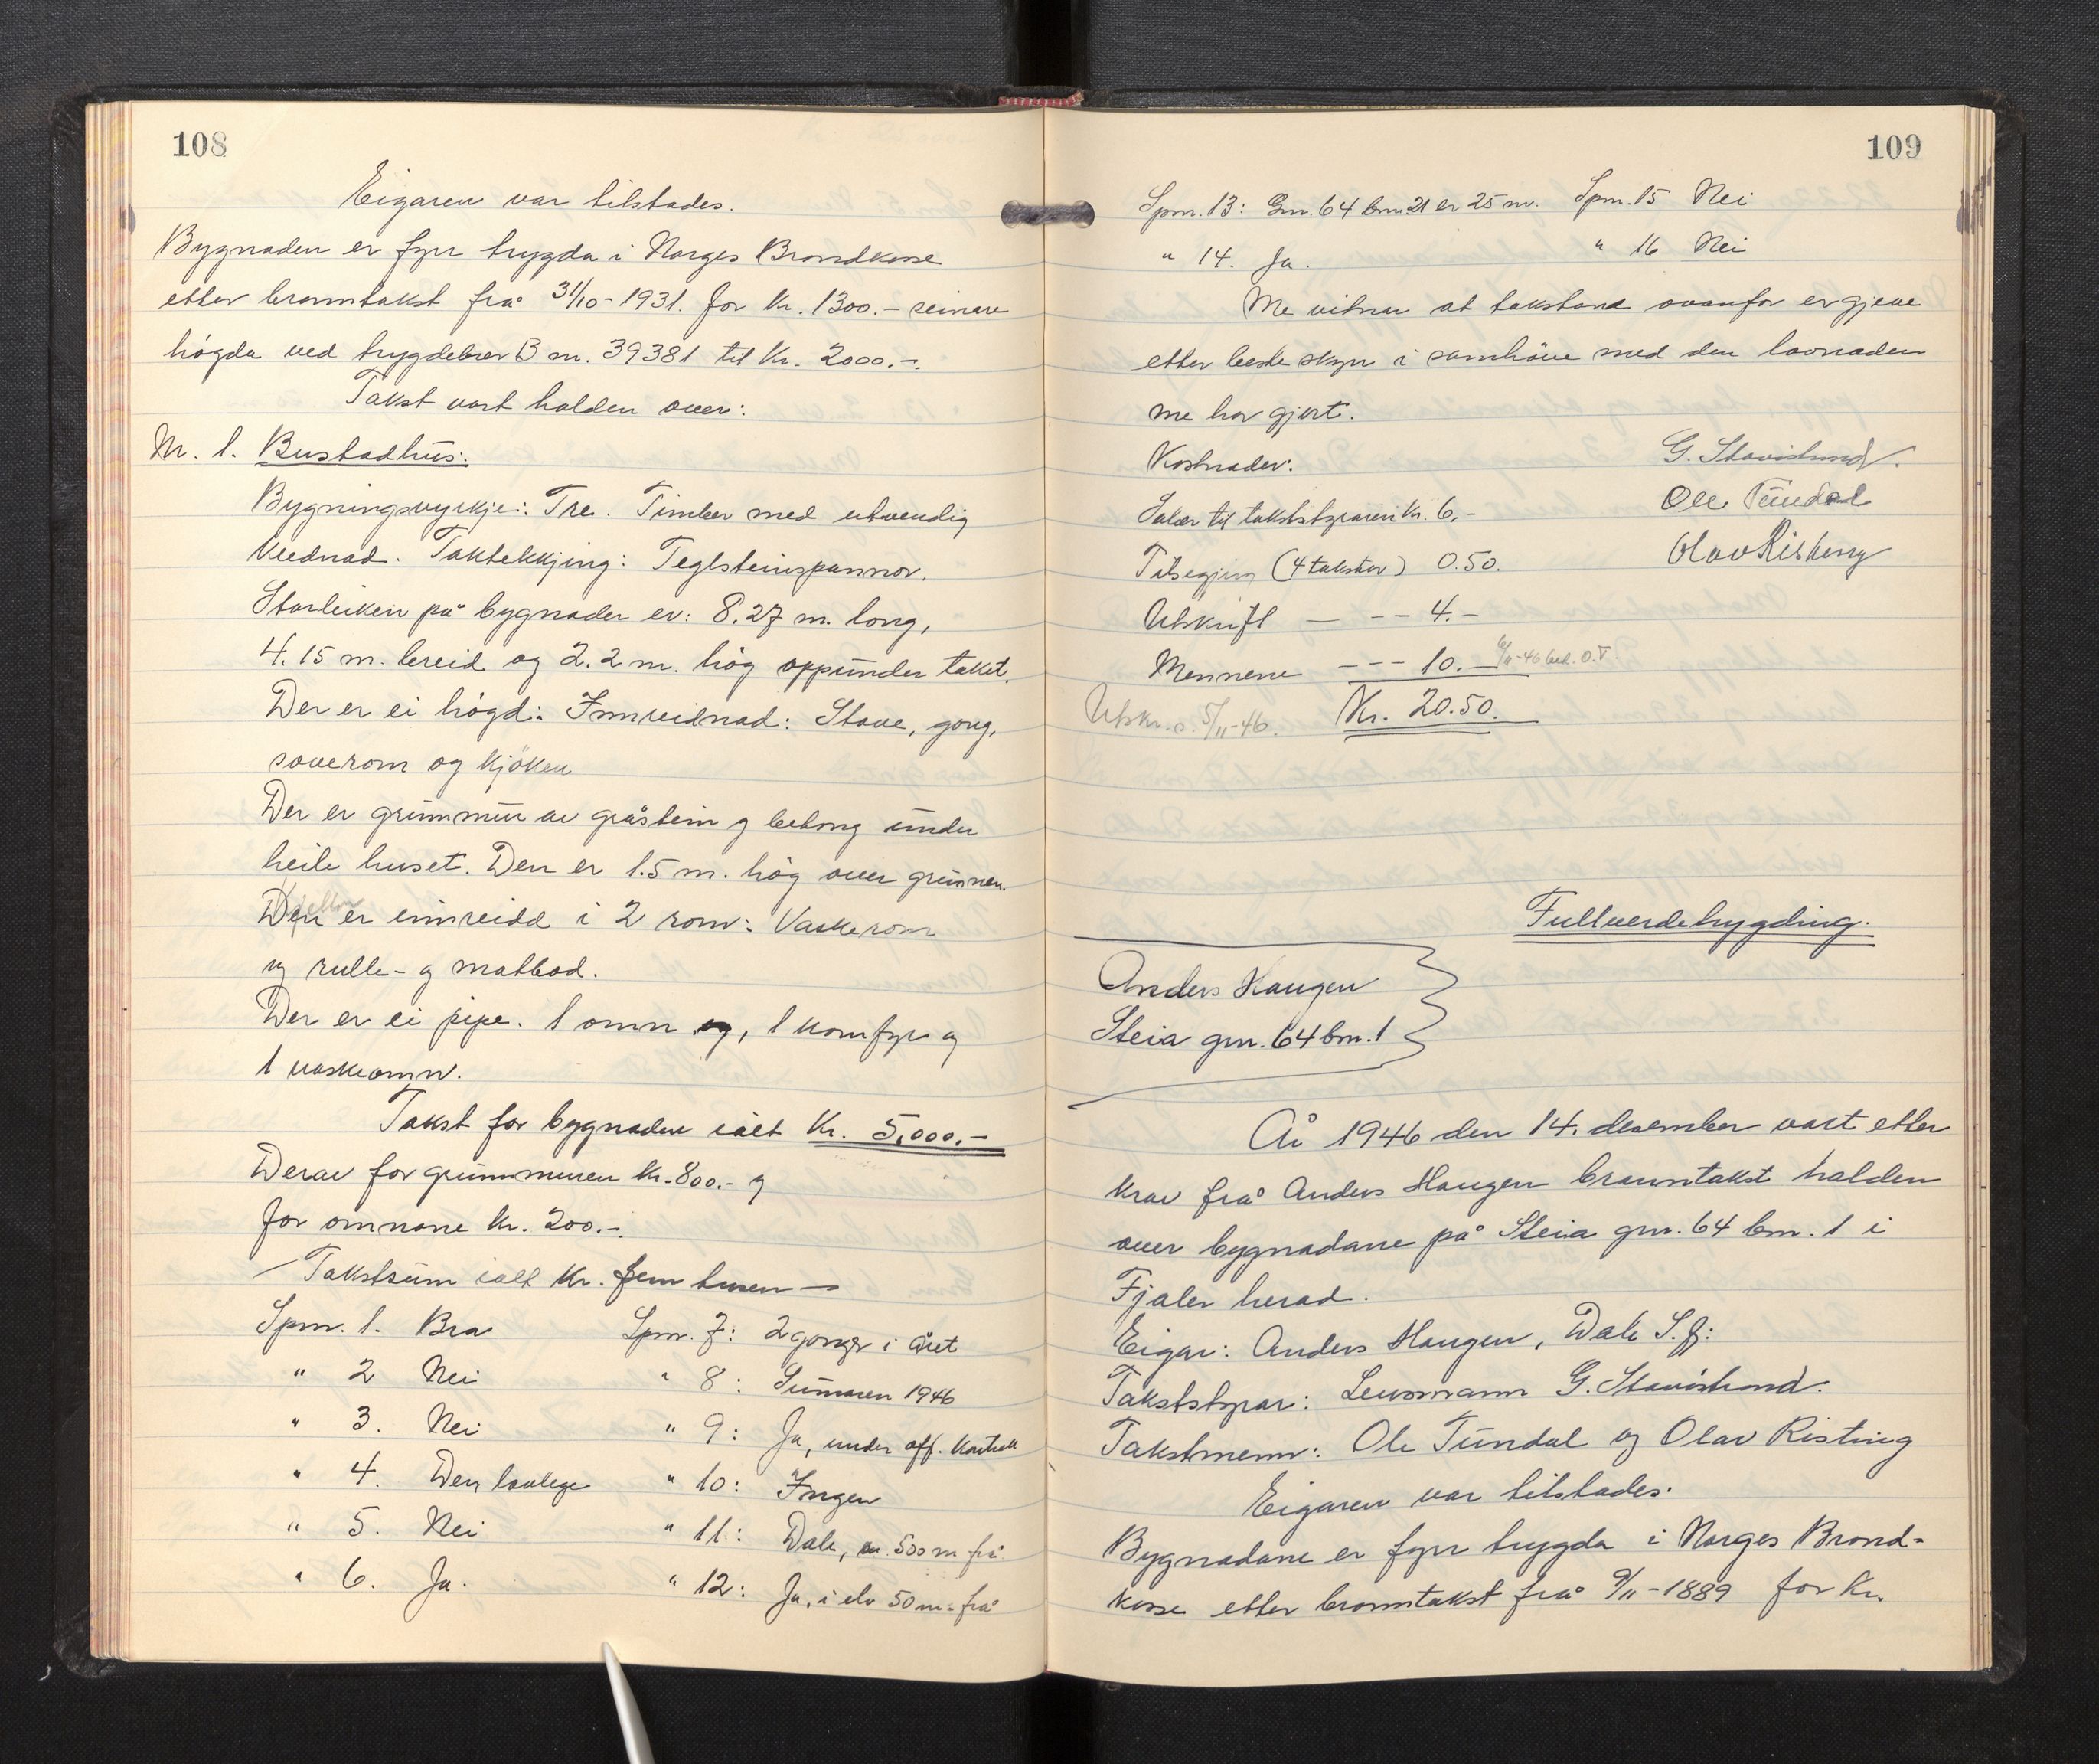 108
Eigaren var tilstades.
Bygnaden er fyrr trygda i Norges Brandkasse
etter branntakst frå 31/10-1931. for kr. 1300.- seinare
högda ved trygdebrev B nr. 39381 til kr. 2000.-.
Takst vart halden over:
Nr. 1. Bustadhus:
Bygningsvyrkje: Tre. Timber med utvendig
klednad. Taktekkjing: Teglsteinspannor.
Storleiken på bygnaden er: 8.27 m. lang,
4.15 m. breid og 2.2 m. høg oppunder taket.
Der er ei høgd: Innreidnad: Stove, gong,
soverom og kjøken
Der er grunnmur av gråstein og betong under
heile huset. Den er 1.5 m. høg over grunnen.
Kjellar
Den er innreidd i 2 rom: Vaskerom
og rulle- og matbod.
Der er ei pipe. 1 omn og, 1 komfyr og
1 vaskeomn.
Takst for bygnaden ialt Kr. 5,000.-
Derav for grunnmuren kr. 800.- og
for omnane kr. 200.-.
Takstsum ialt kr. fem tusen—
Spm. 1. Bra Spm. 7: 2 gonger i året
" 2 Nei " 8: Sumaren 1946
" 3. Nei " 9: Ja, under off. kontroll
" 4. Den lovlege " 10: Ingen
" 5. Nei " 11: Dale, ca. 500 m frå
" 6. Ja. " 12: Ja, i elv 50 m. frå
109
Spm. 13: Gnr. 64 bnr. 21 er 25 m. Spm. 15 Nei
" 14. Ja. " 16 Nei
Me vitnar at takstane ovanfor er gjeve
etter beste skyn i samhøve med den lovnaden
me har gjort.
Kostnader: G. Stavøstrand.
Salær til takststyraren kr. 6,- Ole Tundal
Tilsegjing (4 takster) 0.50. Olav Risting
Utskrift — - - 4.-
Mennene - - - 10.- 6/11-46 bet. O.T.
Utskr. s. 5/11-46. Kr. 20.50.
Fullverdetrygding.
Anders Haugen
Steia gnr. 64 bnr. 1
År 1946 den 14. desember vart etter
krav frå Anders Haugen branntakst halden
over bygnadane på Steia gnr. 64 bnr. 1 i
Fjaler herad.
Eigar: Anders Haugen, Dale S.fj:
Takststyrar: Lensmann G. Stavøstrand.
Takstmenn: Ole Tundal og Olav Risting
Eigaren var tilstades.
Bygnadane er fyrr trygda i Norges Brand-
kasse etter branntakst frå 9/11-1889 for kr.